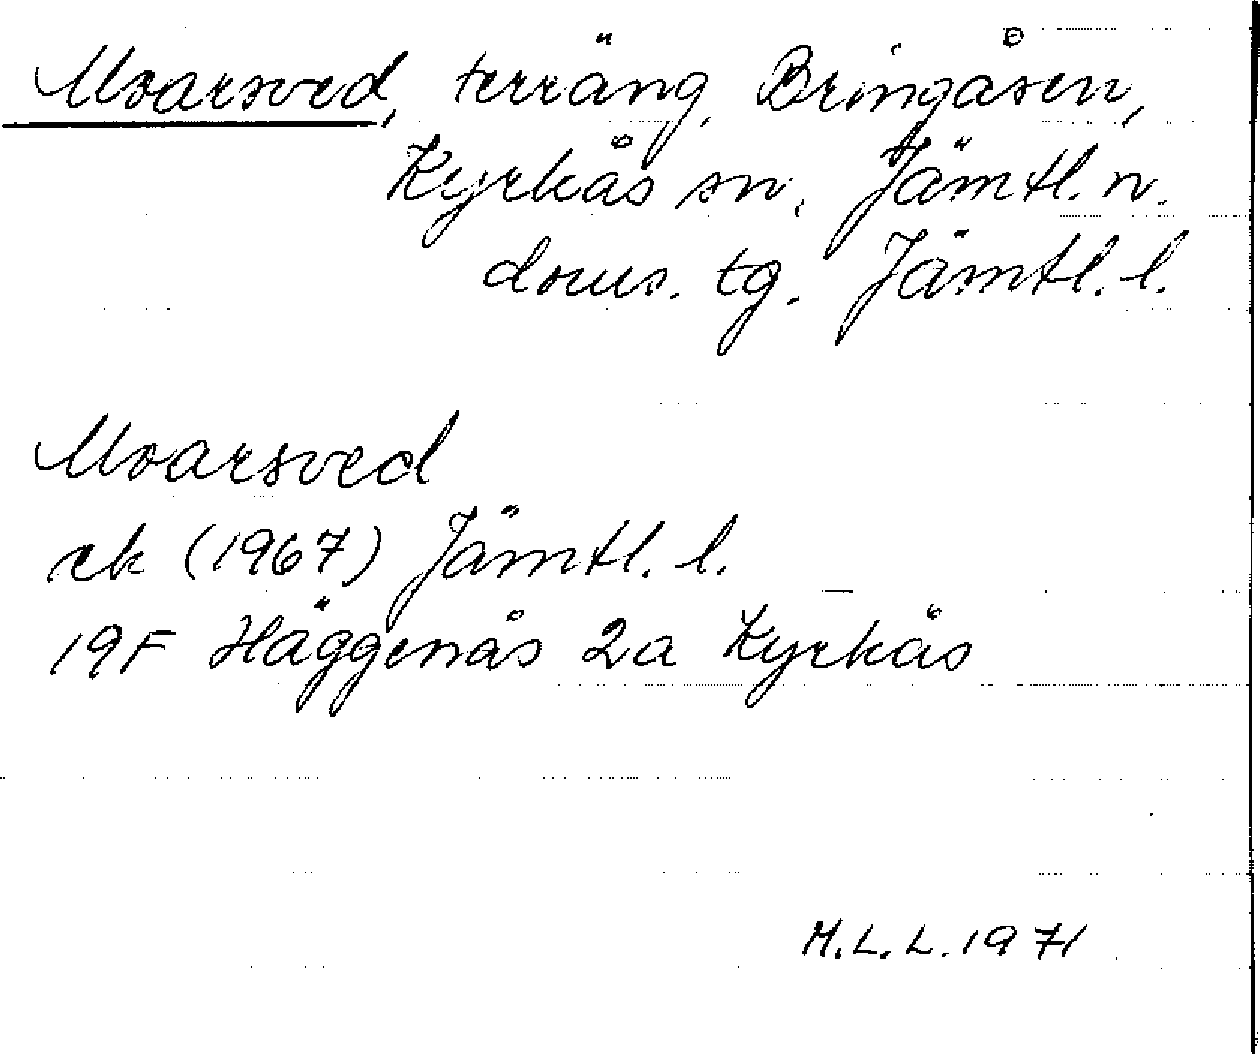 Moarsved, terräng, Bringåsen,
Kyrkås sn, Jämtl. n.
doms. tg. Jämtl. l.
Moarsved
ek (1967) Jämtl. l.
19F Häggenås 2a Kyrkås
M.L.L. 1971